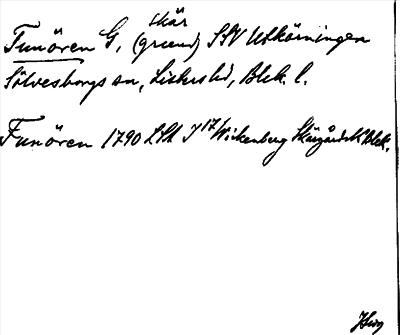 skär
Funören G, (grund) SSV Utkörningen
Sölvesborgs sn, Listers hd, Blek. l.
Funören 1790 LSA J 17/ Wickenberg Skärgårdsk Blek.